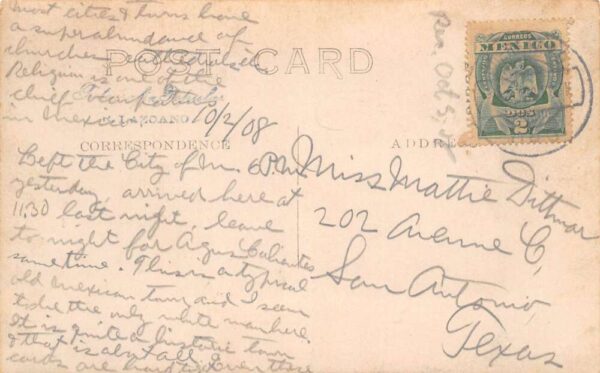 most cities & towns have
a superabundance of
churches cathedrals &c
Religion is one of the
chief
in Mexico
POST CARD
LAZCANO
10/2/08
CORRESPONDENCE
ADDRESS
Rec. Oct 5,
CORREOS
MEXICO
DOS
2
Left the City of M. 6 P.M.
yesterday, arrived here at
11.30 last night, leave
to night for Agus Caliantes
sometime. This is a typical
old Mexican town and I seem
to be the only white man here.
It is quite a historic town
& that is about all.
cards are hard
Miss Mattie Dittmar
202 Avenue C,
San Antonio,
Texas